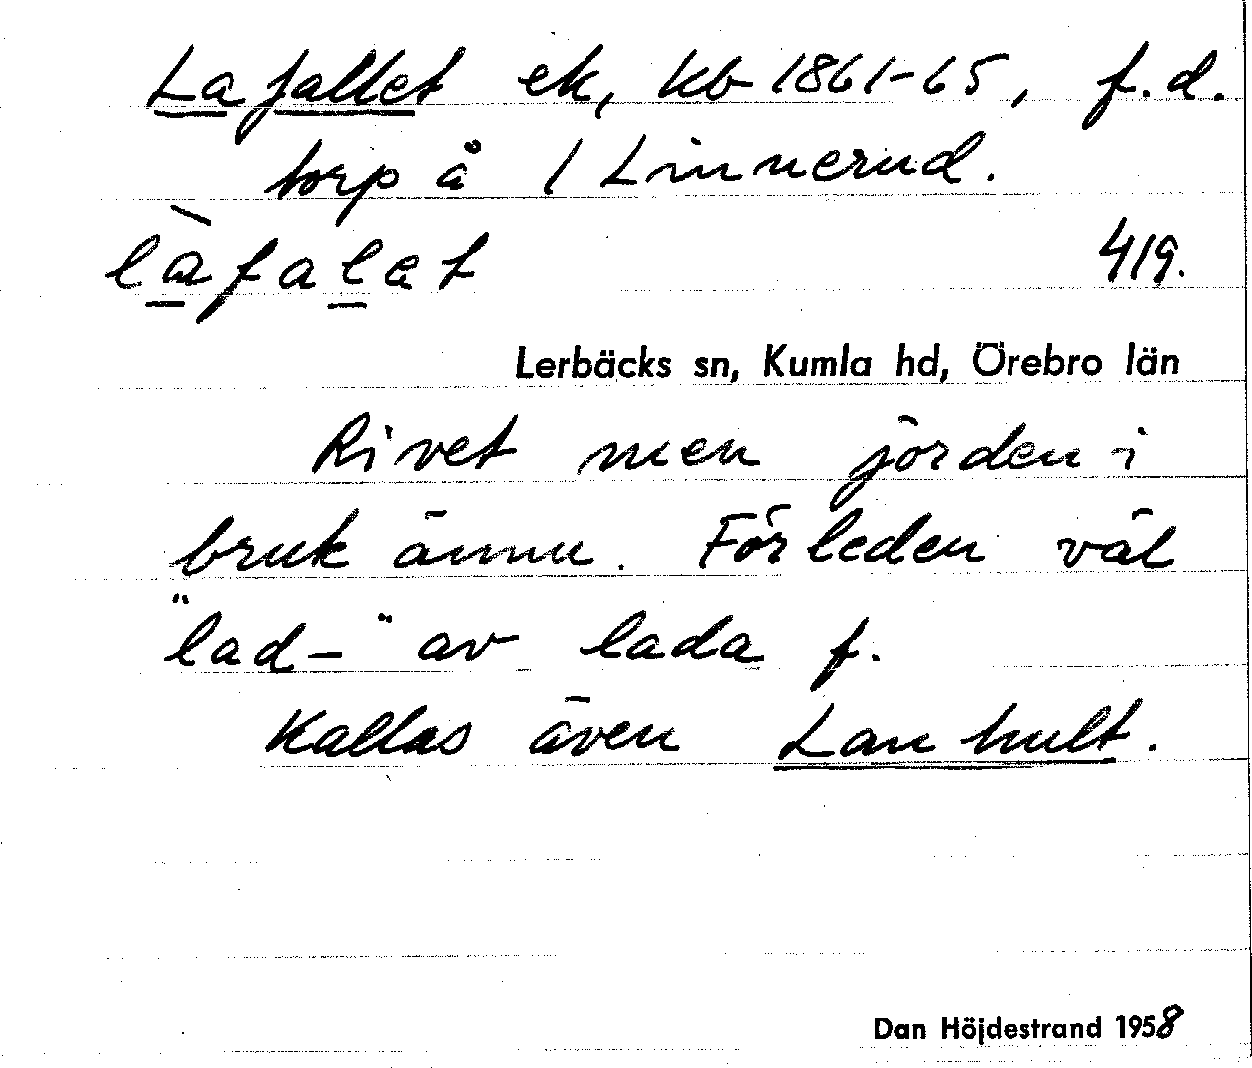 Lafallet ek, kb 1861-65, f.d.
torp å 1 Linnerud.
làfalet
419.
Lerbäcks sn, Kumla hd, Örebro län
Rivet men jorden i
bruk ännu. Förleden väl
"lad-" av lada f.
Kallas även Lanhult.
Dan Höjdestrand 1958